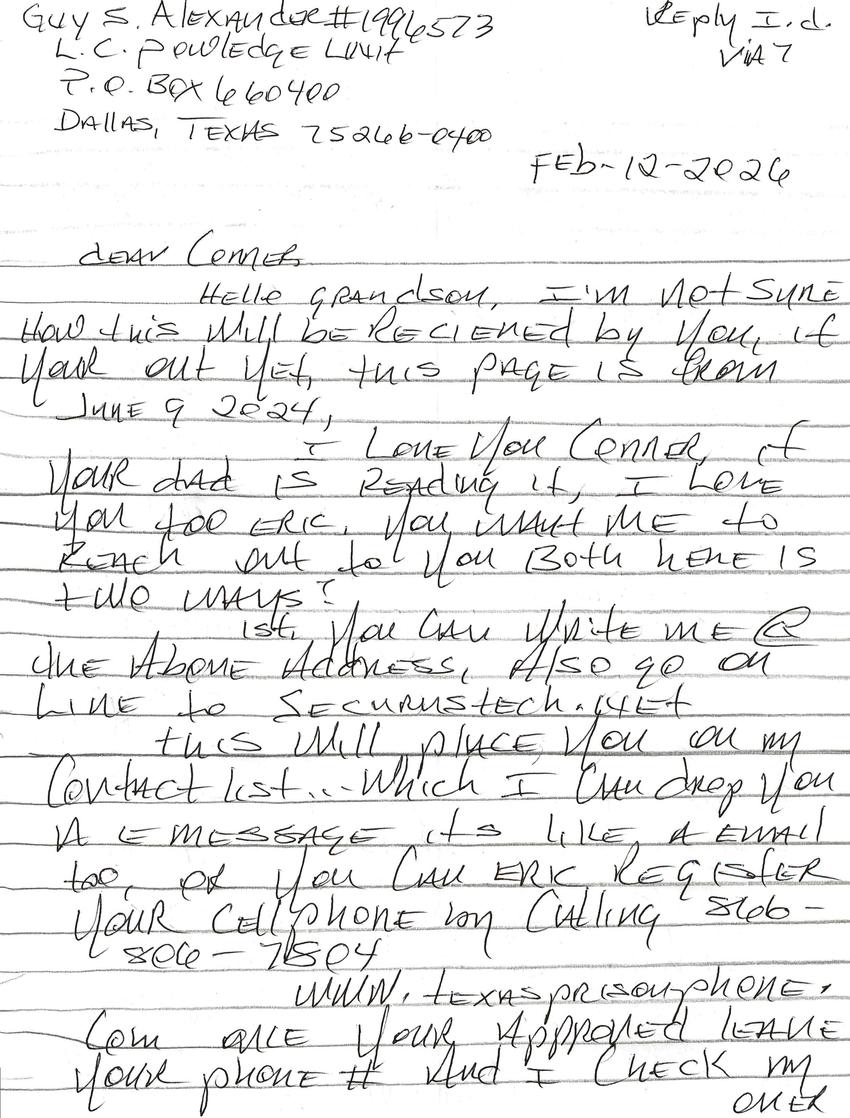 Guy S. Alexander #1996573
Reply I.d.
L.C. Powledge Unit
Via ?
P.O. Box 660400
Dallas, Texas 75266-0400
Feb-12-2026
dear Conner
Hello grandson, I'm not sure
How this will be Recieved by you, if
your out yet, this page is from
June 9 2024,
I Love you Conner, if
your dad is Reading it, I Love
you too Eric. you want me to
Reach out to you Both here is
two ways?
1st, you can write me @
the Above Address, Also go on
Line to Securustech.net
this will place you on my
Contact list... Which I can drop you
A E message its like A email
too, or you can Eric Register
your cellphone by Calling 866-
806-7804
www.texasprisonphone.
Com once your Approved leave
your phone # And I check my
over